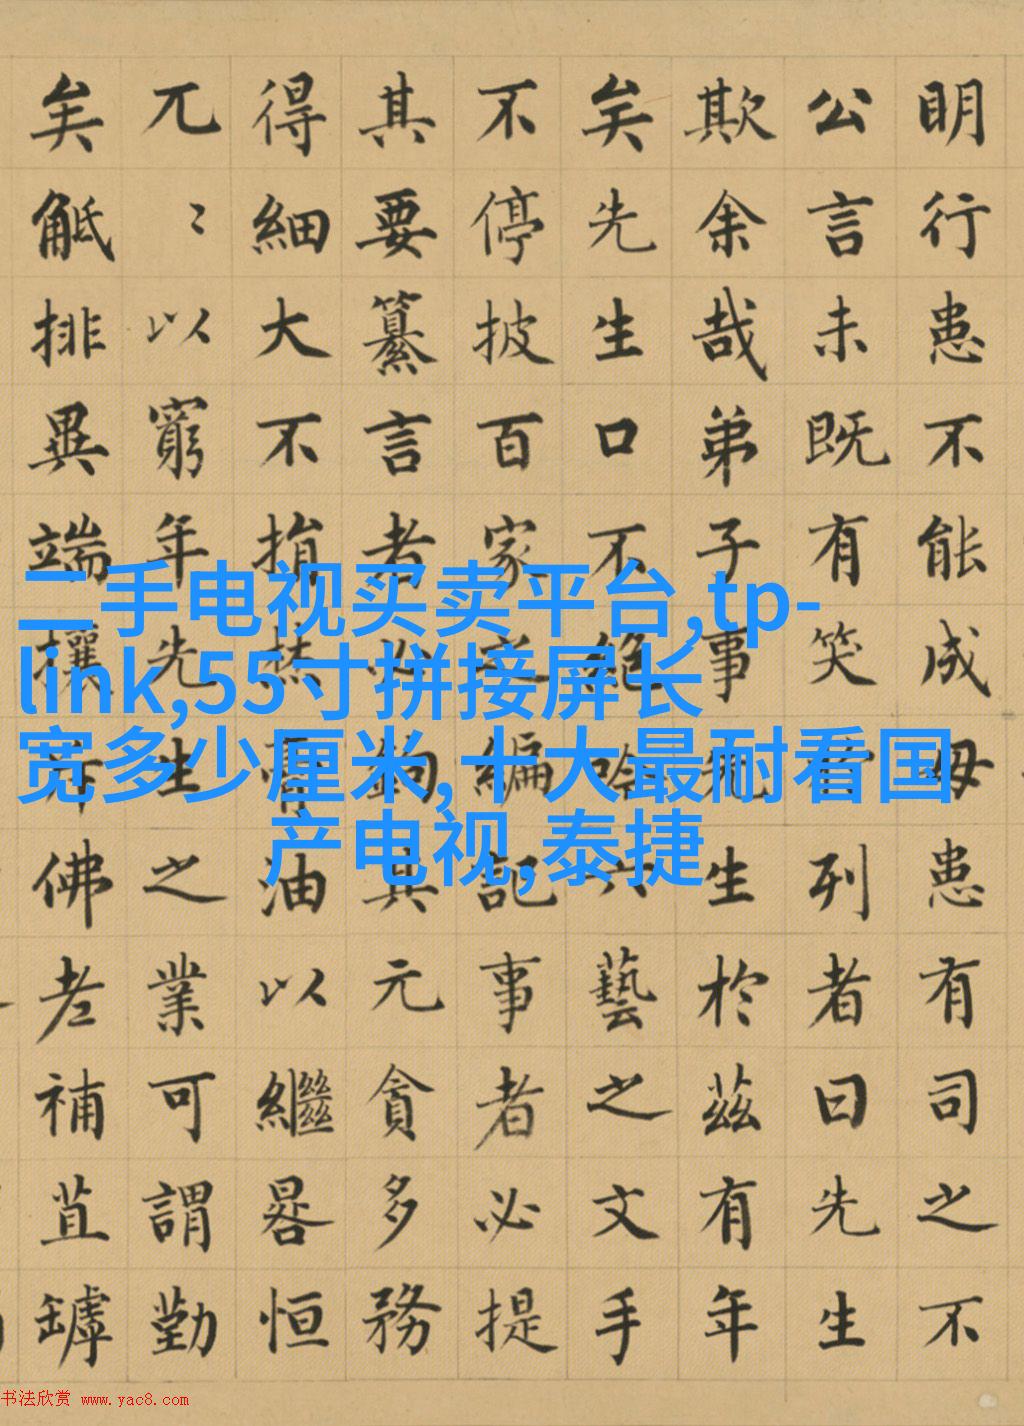 明行患不能成毋患有司之不
公言未既有笑於列者曰先生
欺余哉弟子事先生於茲有年
矣先生口不絕吟六藝之文手
不停披百家之編記事者必提
其要纂言者必鉤其元貪多務
得細大不捐焚膏油以繼晷恒
兀〻以窮年先生之業可謂勤
矣觝排異端攘斥佛老補苴罅
二手电视买卖平台,tp-
link,55寸拼接屏长
宽多少厘米,十大最耐看国
产电视,泰捷
书法欣赏 www.yac8.com